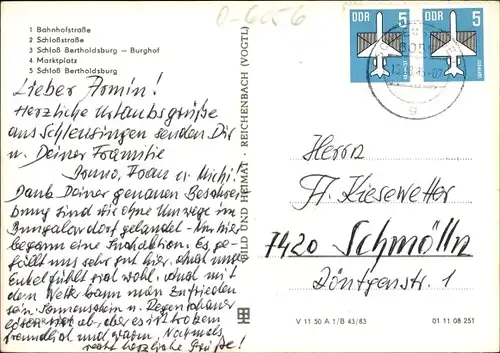 0-6056
1 Bahnhofstraße
2 Schloßstraße
3 Schloß Bertholdsburg — Burghof
4 Marktplatz
5 Schloß Bertholdsburg
Lieber Armin!
Herzliche Urlaubsgrüße
aus Schleusingen senden Dir
u. Deiner Framilie
Frau u. Michi!
Dank Deiner genauen Beschrei-
bung sind wir ohne Umwege im
Bungalowdorf gelandet
begann eine Es ge-
fällt uns sehr gut hier, und unser
Enkel fühlt wohl, und mit
dem Wetter kann man zufrieden
sein. Sonnenschein u. Regenschauer
ab, aber es ist trotzdem
freundlich und warm. Nochmals
recht herzliche Grüße!
BILD UND HEIMAT · REICHENBACH (VOGTL)
DDR 5
DDR 5
Herrn
A. Kiesewetter
7420 Schmölln
Döntgenstr. 1
V 11 50 A 1/B 43/83
01 11 08 251